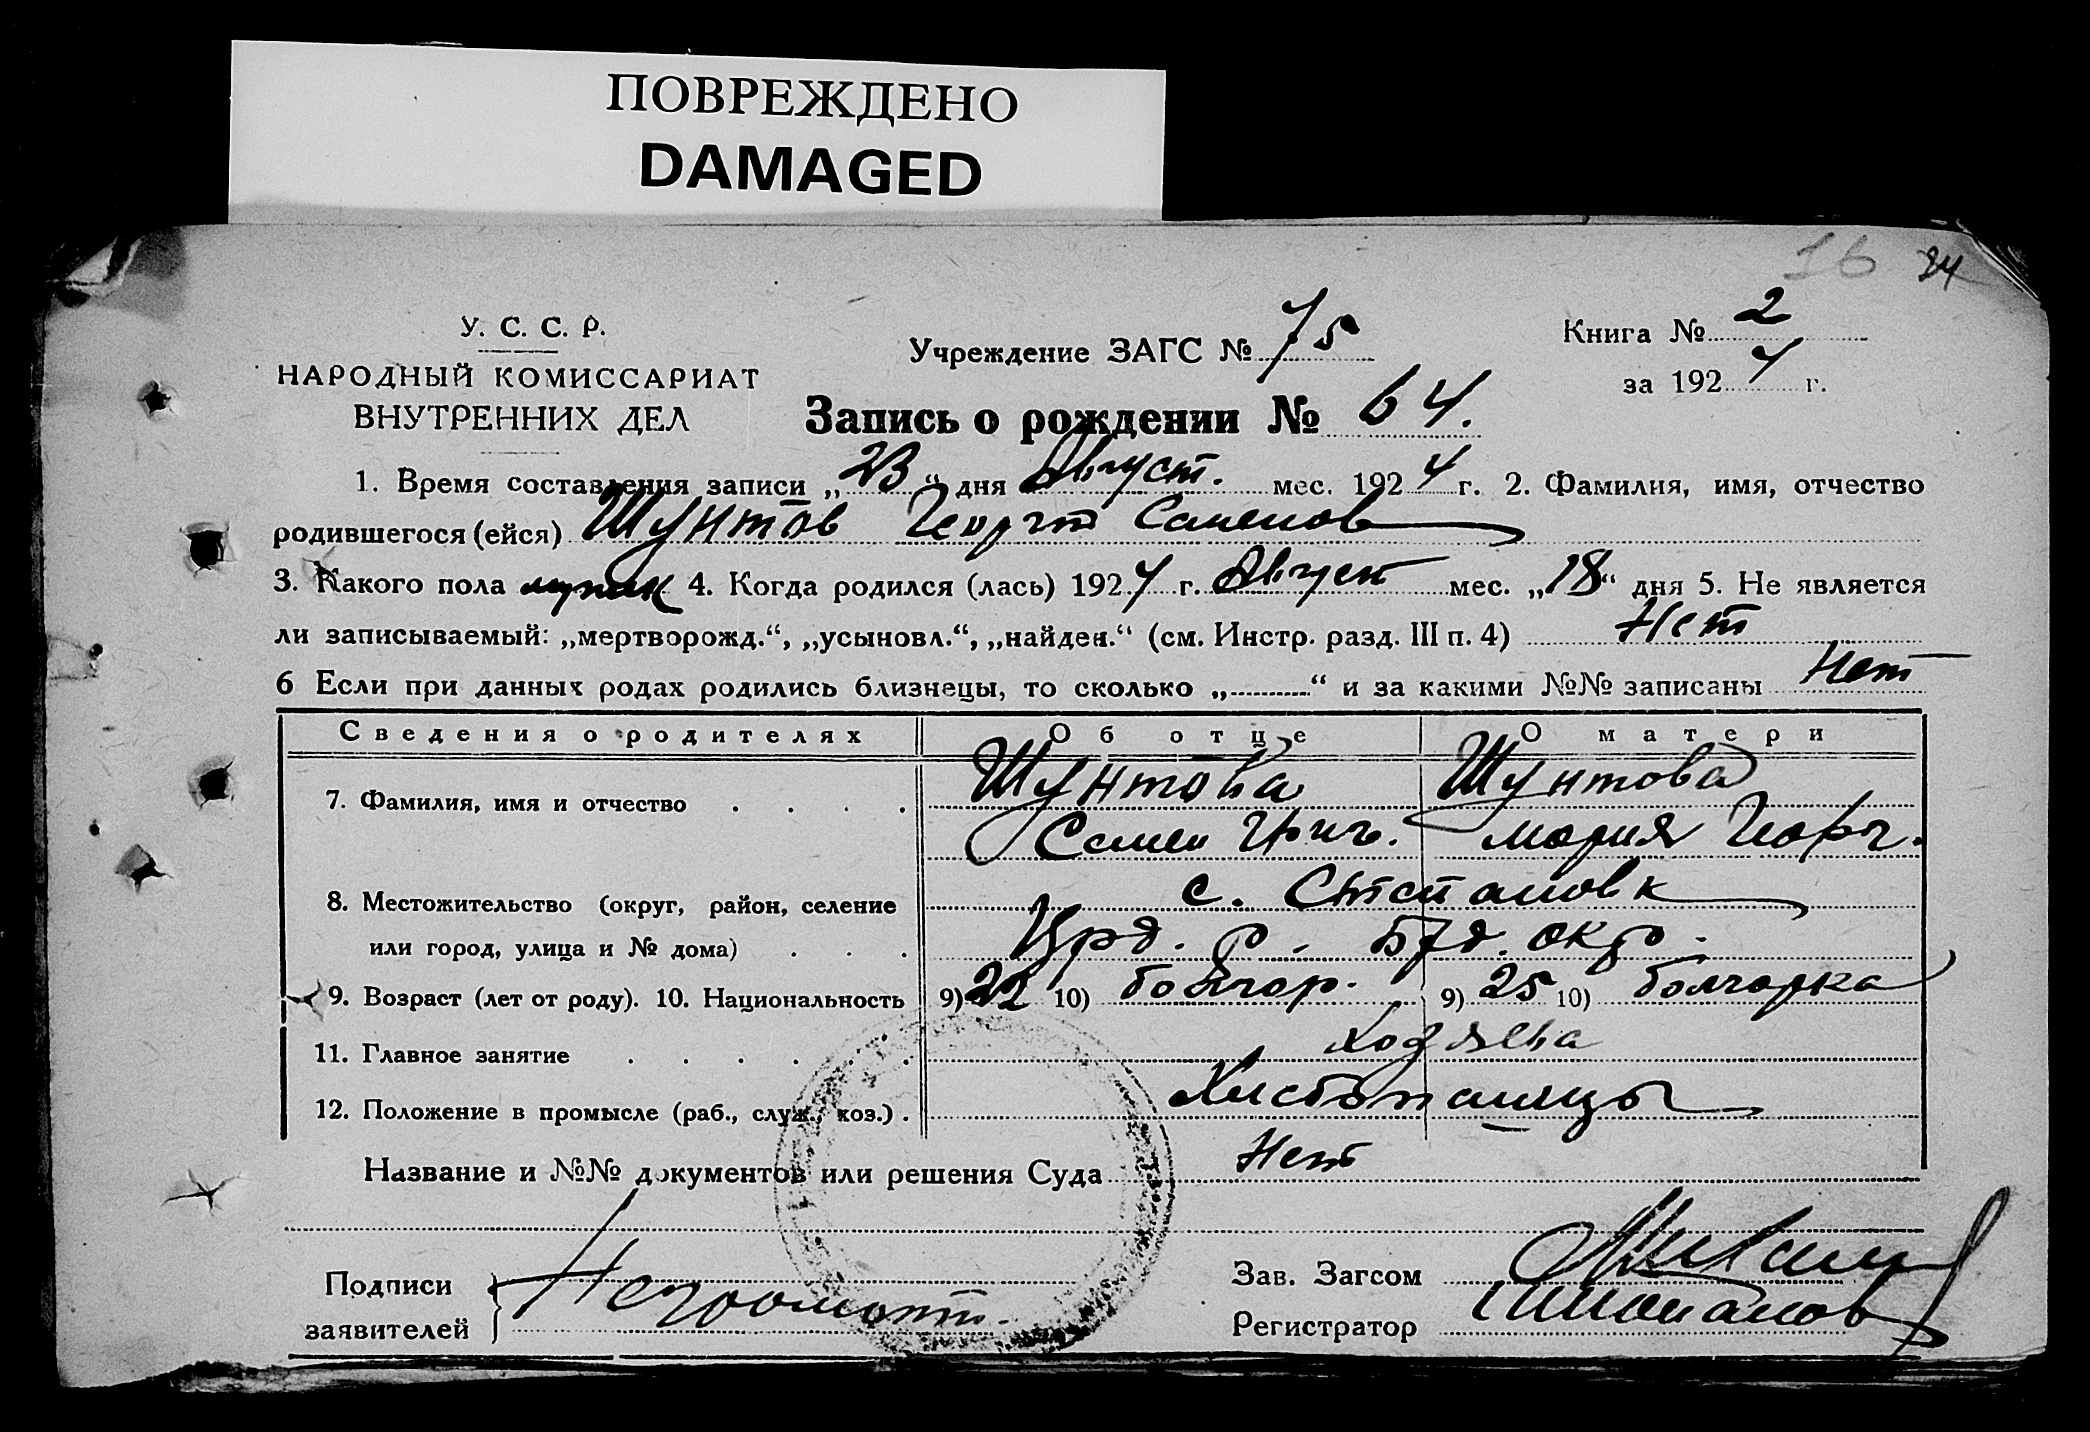 ПОВРЕЖДЕНО
DAMAGED
16 24
У. С. С. Р.
НАРОДНЫЙ КОМИССАРИАТ
ВНУТРЕННИХ ДЕЛ
Учреждение ЗАГС № 75
Книга № 2
за 1924 г.
Запись о рождении № 64.
1. Время составления записи „23“ дня Август. мес. 1924 г. 2. Фамилия, имя, отчество
родившегося (ейся) Шунтов Георги Саменов
3. Какого пола мужск 4. Когда родился (лась) 1924 г. Август мес. „18“ дня 5. Не является
ли записываемый: „мертворожд.“, „усыновл.“, „найден.“ (см. Инстр. разд. III п. 4) Нет
6 Если при данных родах родились близнецы, то сколько „..........“ и за какими №№ записаны Нет
Сведения о родителях Об отце О матери
7. Фамилия, имя и отчество . . . . Шунтова Шунтова
Самен Григ. Мария Георг.
8. Местожительство (округ, район, селение с. Степановк
или город, улица и № дома) . . . Црд. р. Бд. окр.
9. Возраст (лет от роду). 10. Национальность 9) 22 10) болгар. 9) 25 10) болгарка
11. Главное занятие . . . . . .
12. Положение в промысле (раб., служ., хоз.) . Хлебопашцы
Название и №№ документов или решения Суда Нет
Подписи
заявителей } Неграмотн.
Зав. Загсом
Регистратор